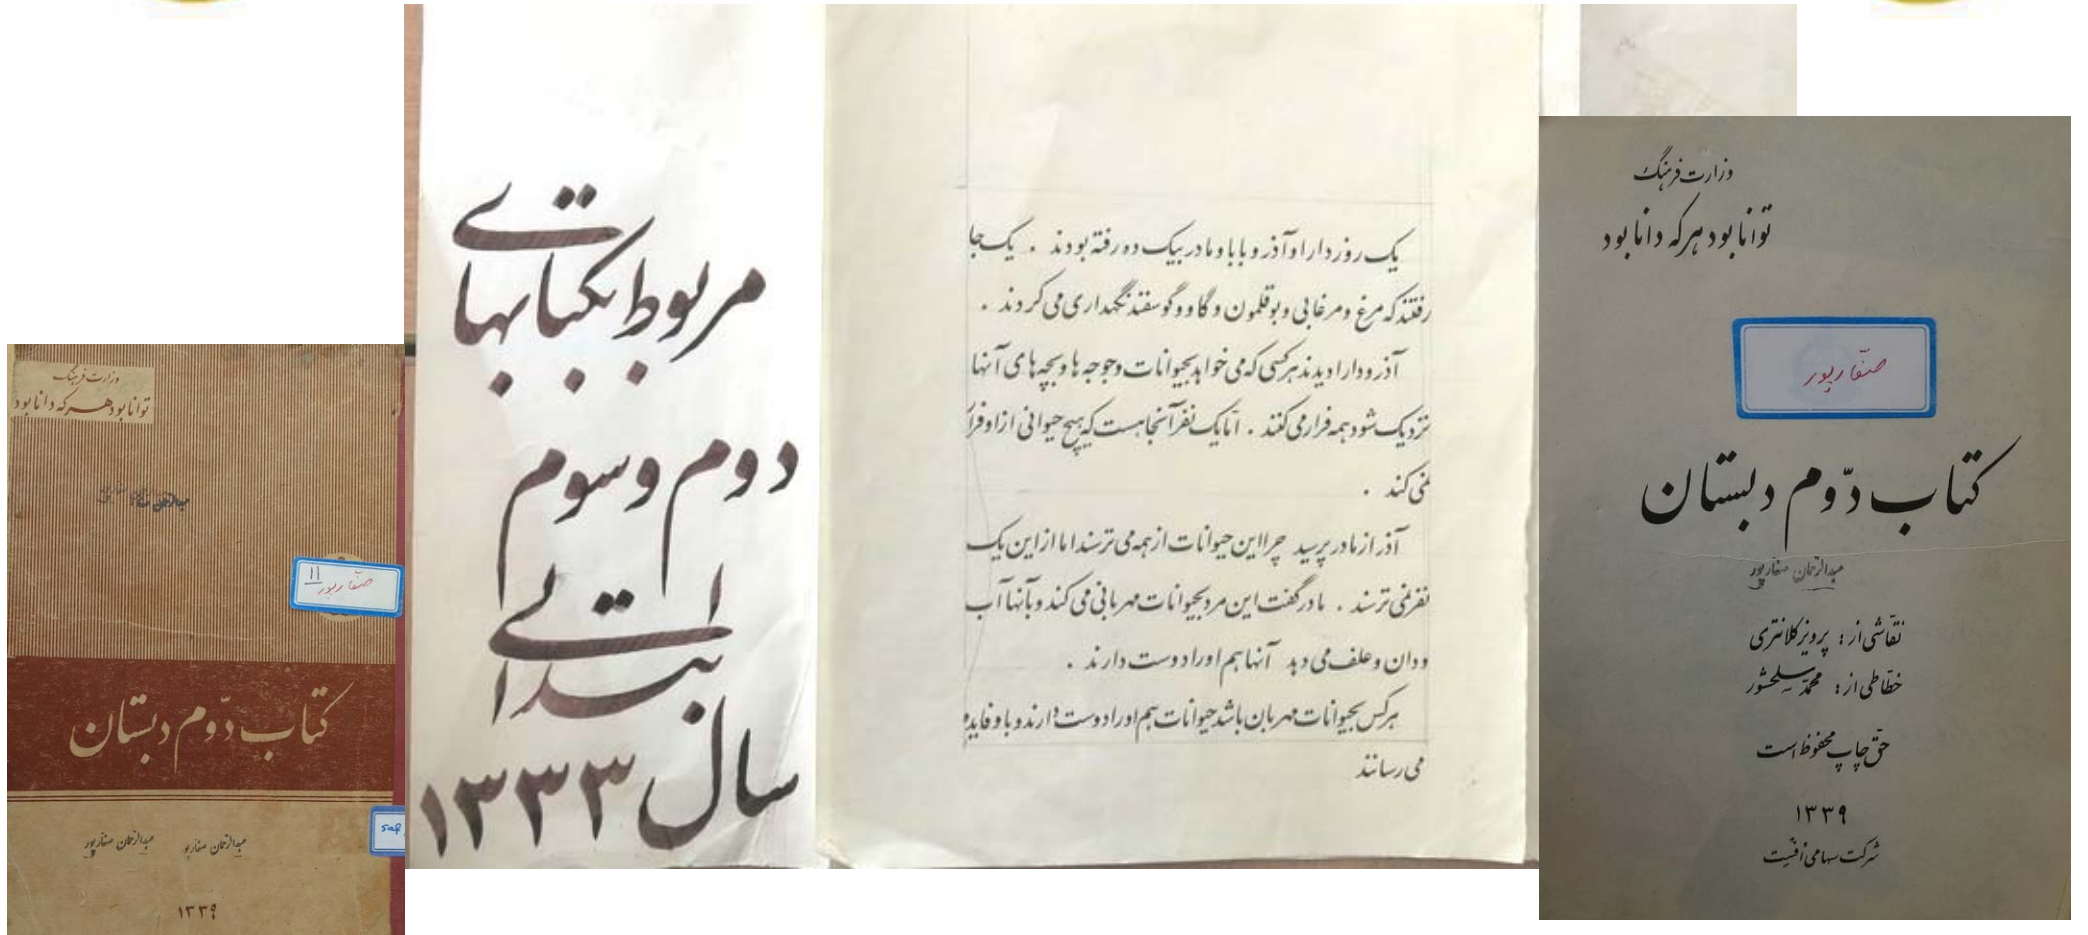 وزارت فرهنگ
توانا بود هر که دانا بود
صفارپور
کتاب دوّم دبستان
عبدالرحمان صفارپور
نقّاشی از: پرویز کلانتری
خطّاطی از: محمّد سلحشور
حقّ چاپ محفوظ است
۱۳۳۹
شرکت سهامی افست
یک روز دارا و آذر و بابا و مادر بیک ده رفته بودند . یک جا
رفتند که مرغ و مرغابی و بوقلمون و گاو و گوسفند نگهداری می کردند .
آذر و دارا دیدند هر کسی که می خواهد بحیوانات و جوجه ها و بچه های آنها
نزدیک شود همه فرار می کنند . امّا یک نفر آنجا هست که هیچ حیوانی از او فرار
نمی کند .
آذر از مادر پرسید چرا این حیوانات از همه می ترسند اما از این یک
نفر نمی ترسند . مادر گفت این مرد بحیوانات مهربانی می کند و بآنها آب
و دان و علف می دهد آنها هم او را دوست دارند .
هر کس بحیوانات مهربان باشد حیوانات هم او را دوست دارند و باو فایده
می رسانند
مربوط بکتابهای
دوم و سوم
ابتدایی
سال ۱۳۳۳
وزارت فرهنگ
توانا بود هر که دانا بود
۱۱
صفارپور
کتاب دوّم دبستان
saf
عبدالرحمان صفارپور عبدالرحمان صفارپور
۱۳۳۹